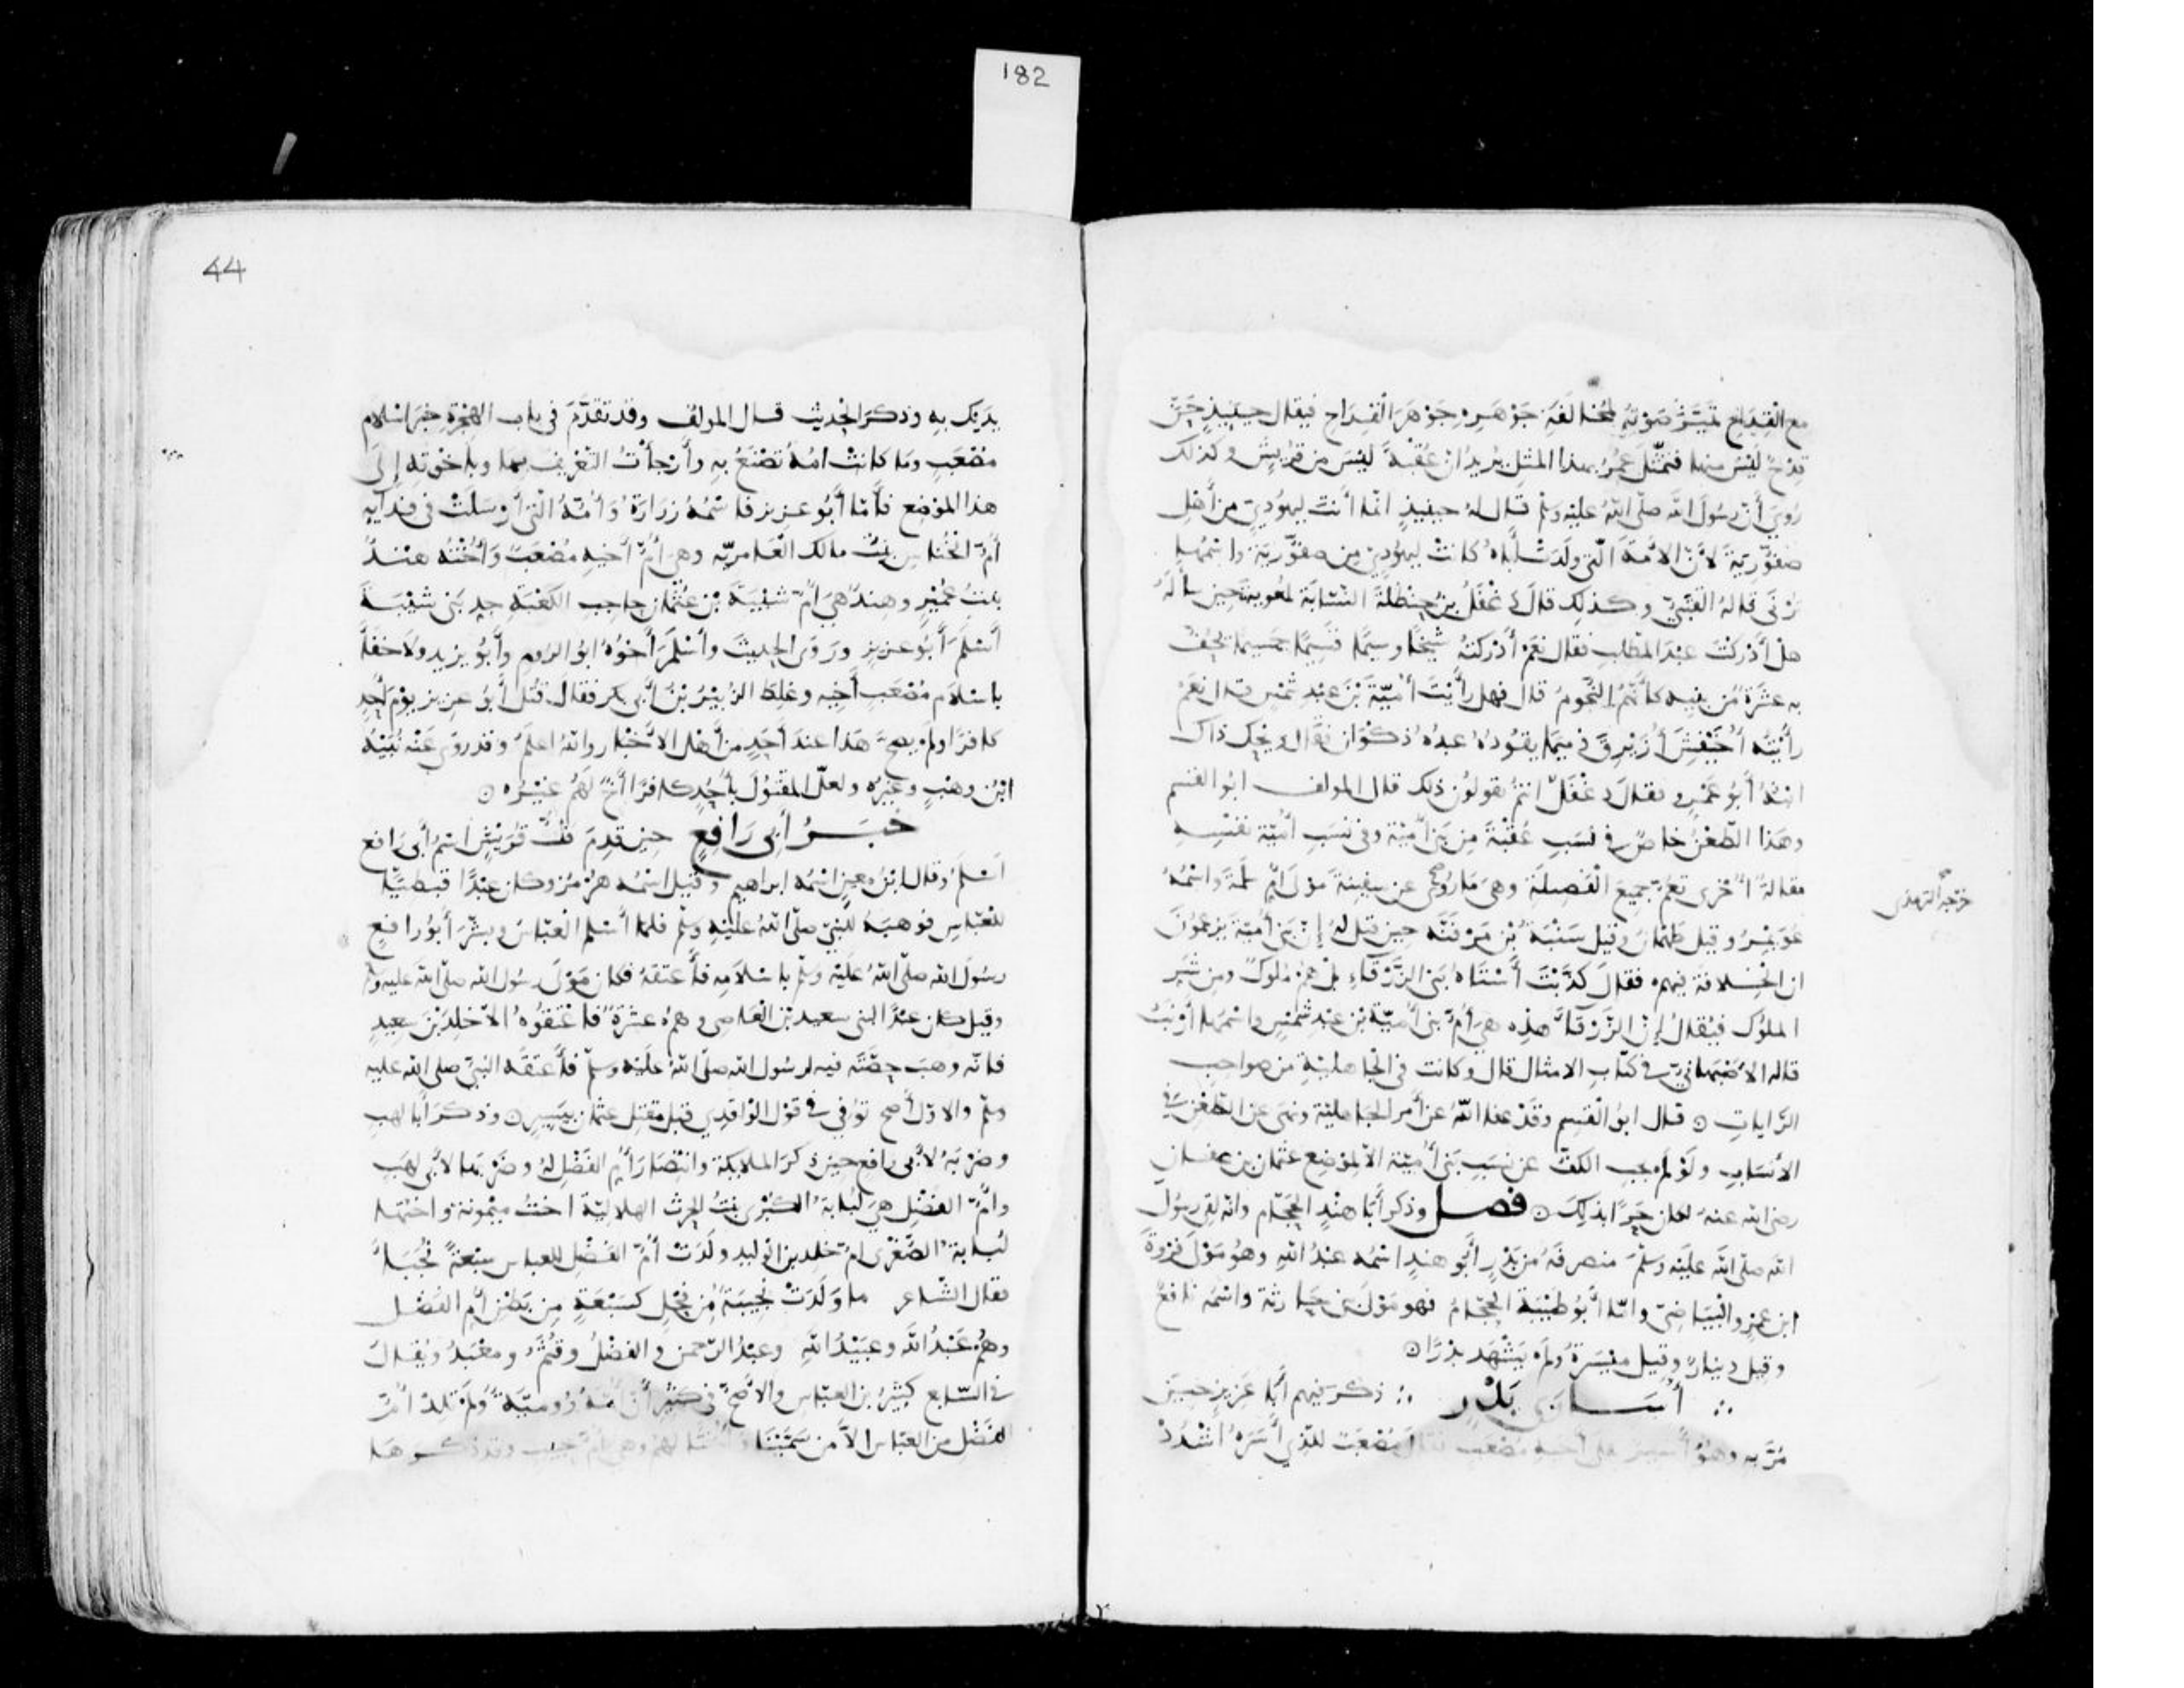 182
مع القداح تميز صوته لمخالفة جوهره جوهر القداح فيقال حينيذ حن
قدح ليس منها فتمثل عمر بهذا المثل يريد ان عقبة ليس من قريش وكذلك
روي أن رسول الله صلى الله عليه وسلم قال له حينيذ انما أنت يهودي من أهل
صفورية لأن الأمة التي ولدت أباه كانت ليهودي من صفورية واسمها
ترنى قاله القتبي وكذلك قال دغفل بن حنظلة النسابة لمعوية حين سأله
هل أدركت عبد المطلب فقال نعم أدركته شيخا وسيما قسيما جسيما يحف
به عشرة من بنيه كأنهم النجوم قال فهل رأيت أمية بن عبد شمس قال نعم
رأيته أخيفش أزيرق دميما يقوده عبده ذكوان فقال ويحك ذاك
ابنه أبو عمرو فقال دغفل انتم تقولون ذلك قال المولف ابو القسم
وهذا الطعن خاص في نسب عقبة من بني أمية وفي نسب أمية نفسه
مقالة أخرى تعم جميع الفصيلة وهي ما روي عن سفينة مولى أم سلمة واسمه
خرجه الترمذي
عمير وقيل طهمان وقيل سنبة بن مرفنه حين قيل له إن بني أمية يزعمون
ان الخلافة فيهم فقال كذبت أستاه بني الزرقاء بل هم ملوك ومن شر
الملوك فيقال إن الزرقاء هذه هي أم بني أمية بن عبد شمس واسمها أرنب
قاله الأصبهاني في كتاب الامثال قال وكانت في الجاهلية من صواحب
الرايات ۞ قال ابو القسم وقد عفا الله عن أمر الجاهلية ونهى عن الطعن في
الأنساب ولو لم يجب الكف عن نسب بني أمية الا لموضع عثمان بن عفان
رضى الله عنه لكان حرا بذلك ۞ فصل وذكر أبا هند الحجام وانه لقي رسول
الله صلى الله عليه وسلم منصرفه من بدر أبو هند اسمه عبد الله وهو مولى فروة
ابن عمرو البياضي وامّا أبو طيبة الحجام فهو مولى بني حارثة واسمه نافع
وقيل دينار وقيل ميسرة ولم يشهد بدرا ۞
أسارى بدر ذكر فيهم أبا عزيز حين
مر به وهو أسير على أخيه مصعب فقال مصعب للذي أسره اشدد
44
يديك به وذكر الحديث قال المولف وقد تقدم في باب الهجرة خبر اسلام
مصعب وما كانت امه تصنع به وأرجأت التعريف بها وباخوته إلى
هذا الموضع فأما أبو عزيز فاسمه زرارة وأمه التي أرسلت في فدايه
أم الخناس بنت مالك العامريه وهي أم أخيه مصعب وأخته هند
بنت عمير وهند هي أم شيبة بن عثمان حاجب الكعبة جد بني شيبة
أسلم أبو عزيز وروى الحديث وأسلم أخوه ابو الروم وأبو يزيد ولا خفاء
باسلام مصعب أخيه وغلط الزبير بن أبي بكر فقال قتل أبو عزيز يوم أحد
كافرا ولم يصح هذا عند أحد من أهل الأخبار والله أعلم وقد روى عنه نبيه
ابن وهب وغيره ولعل المقتول بأحد كافرا أخ لهم غيره ۞
خبر أبي رافع حين قدم فل قريش اسم أبي رافع
اسلم وقال ابن معين اسمه ابراهيم وقيل اسمه هرمز وكان عبدا قبطيا
للعباس فوهبه للنبي صلى الله عليه وسلم فلما أسلم العباس وبشر أبو رافع
رسول الله صلى الله عليه وسلم باسلامه فأعتقه فكان مولى رسول الله صلى الله عليه وسلم
وقيل كان عبدا لبني سعيد بن العاصي وهم عشرة فاعتقوه الا خلد بن سعيد
فانه وهب حصته فيه لرسول الله صلى الله عليه وسلم فأعتقه النبي صلى الله عليه
وسلم والاول أصح توفي في قول الواقدي قبل مقتل عثمان بيسير ۞ وذكر أبا لهب
وضربه لأبي رافع حين ذكر الملايكة وانتصار أم الفضل له وضربها لأبي لهب
وأم الفضل هي لبابة الكبرى بنت الحرث الهلالية اخت ميمونة واختها
لبابة الصغرى ام خلد بن الوليد ولدت أم الفضل للعباس سبعة نجباء
فقال الشاعر ما ولدت نجيبة من فحل كسبعة من بطن أم الفضل
وهم عبد الله وعبيد الله وعبد الرحمن والفضل وقثم ومعبد ويقال
في السابع كثير بن العباس والأصح في كثير أن أمه رومية ولم تلد أم
الفضل من العباس الا من سمينا وأختا لهم وهي أم حبيب وقد ذكرها